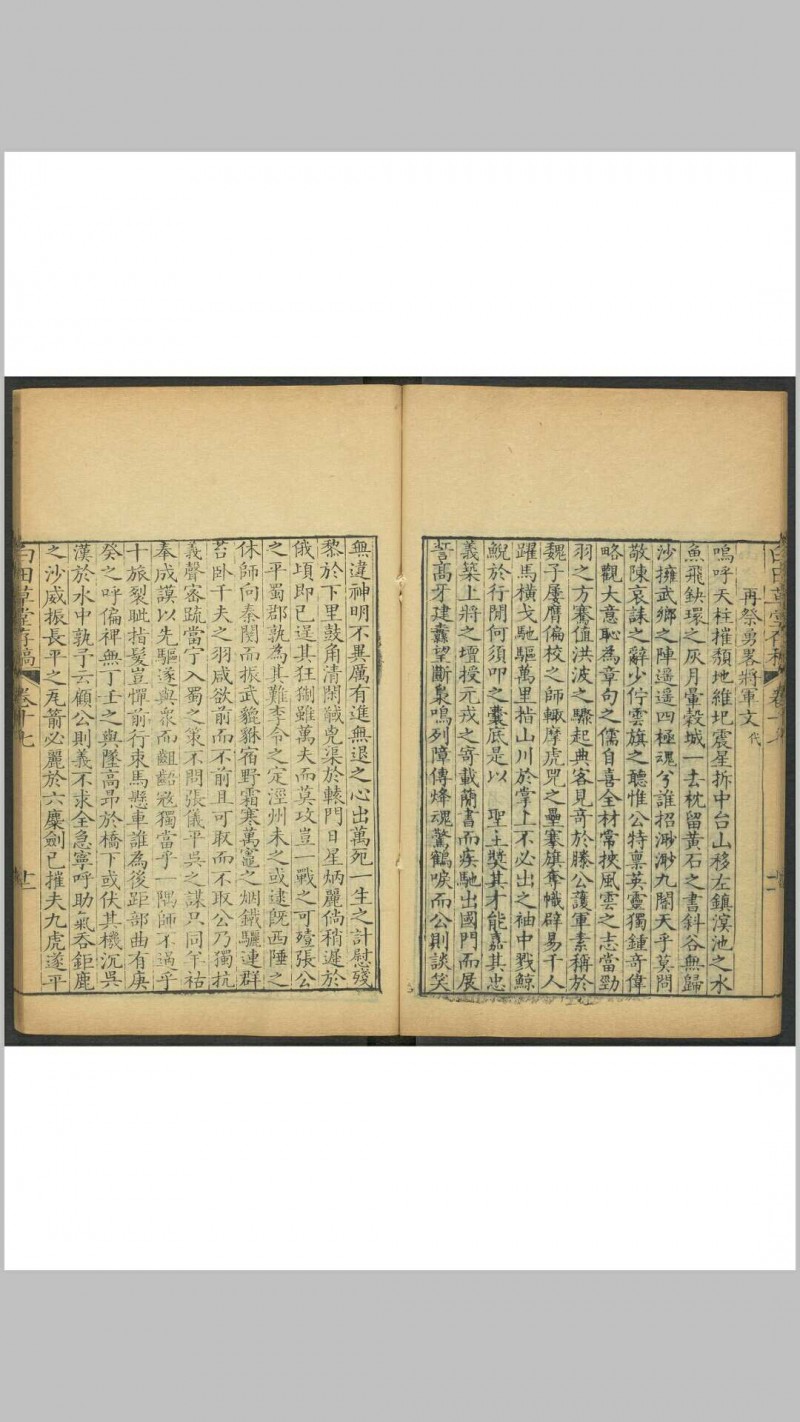 再祭勇畧將軍文代
嗚呼天柱摧頹地維圯震星拆中台山移左鎮滇池之水
魚飛鈌環之灰月暈穀城一去枕留黃石之書斜谷無歸
沙擁武鄉之陣遥遥四極魂兮誰招渺渺九閽天乎莫問
敬陳哀誄之辭少佇雲旗之聽惟公特稟英靈獨鍾奇偉
略觀大意恥為章句之儒自喜全材常挾風雲之志當勁
羽之方騫值洪波之驟起典客見奇於滕公護軍素稱於
魏子屢膺偏校之師輙摩虎兕之壘搴旗奪幟辟易千人
躍馬橫戈馳驅萬里指山川於掌上不必出之袖中戮鯨
鯢於行閒何須叩之囊底是以 聖主獎其才能嘉其忠
義築上將之壇授元戎之寄載蘭書而疾馳出國門而展
誓髙牙建纛望斷梟鳴列障傳烽魂驚鶴唳而公則談笑
無違神明不異厲有進無退之心出萬死一生之計慰殘
黎於下里鼓角清閑馘兇渠於轅門日星炳麗倘稍遲於
俄頃即已逞其狂猘雖萬夫而莫攻豈一戰之可殪張公
之平蜀郡孰為其難李令之定涇州未之或逮旣西陲之
休師向秦閿而振武貔貅宿野霜寒萬竈之烟鐵驪連群
苔卧千夫之羽咸欲前而不前且可取而不取公乃獨抗
義聲密疏當宁入蜀之策不閼張儀平吳之謀只同羊祜
奉成謨以先驅遂與衆而齟齬冦獨當乎一隅師不過乎
十旅裂眦指髮豈憚前行束馬懸車誰為後距部曲有庚
癸之呼偏禆無丁壬之與墜高昂於橋下或伏其機沉吳
漢於水中孰予云顧公則義不求全急寧呼助氣吞鉅鹿
之沙威振長平之瓦箭必麗於六麋劍已摧夫九虎遂平
白田草堂存稿 卷十七 十二